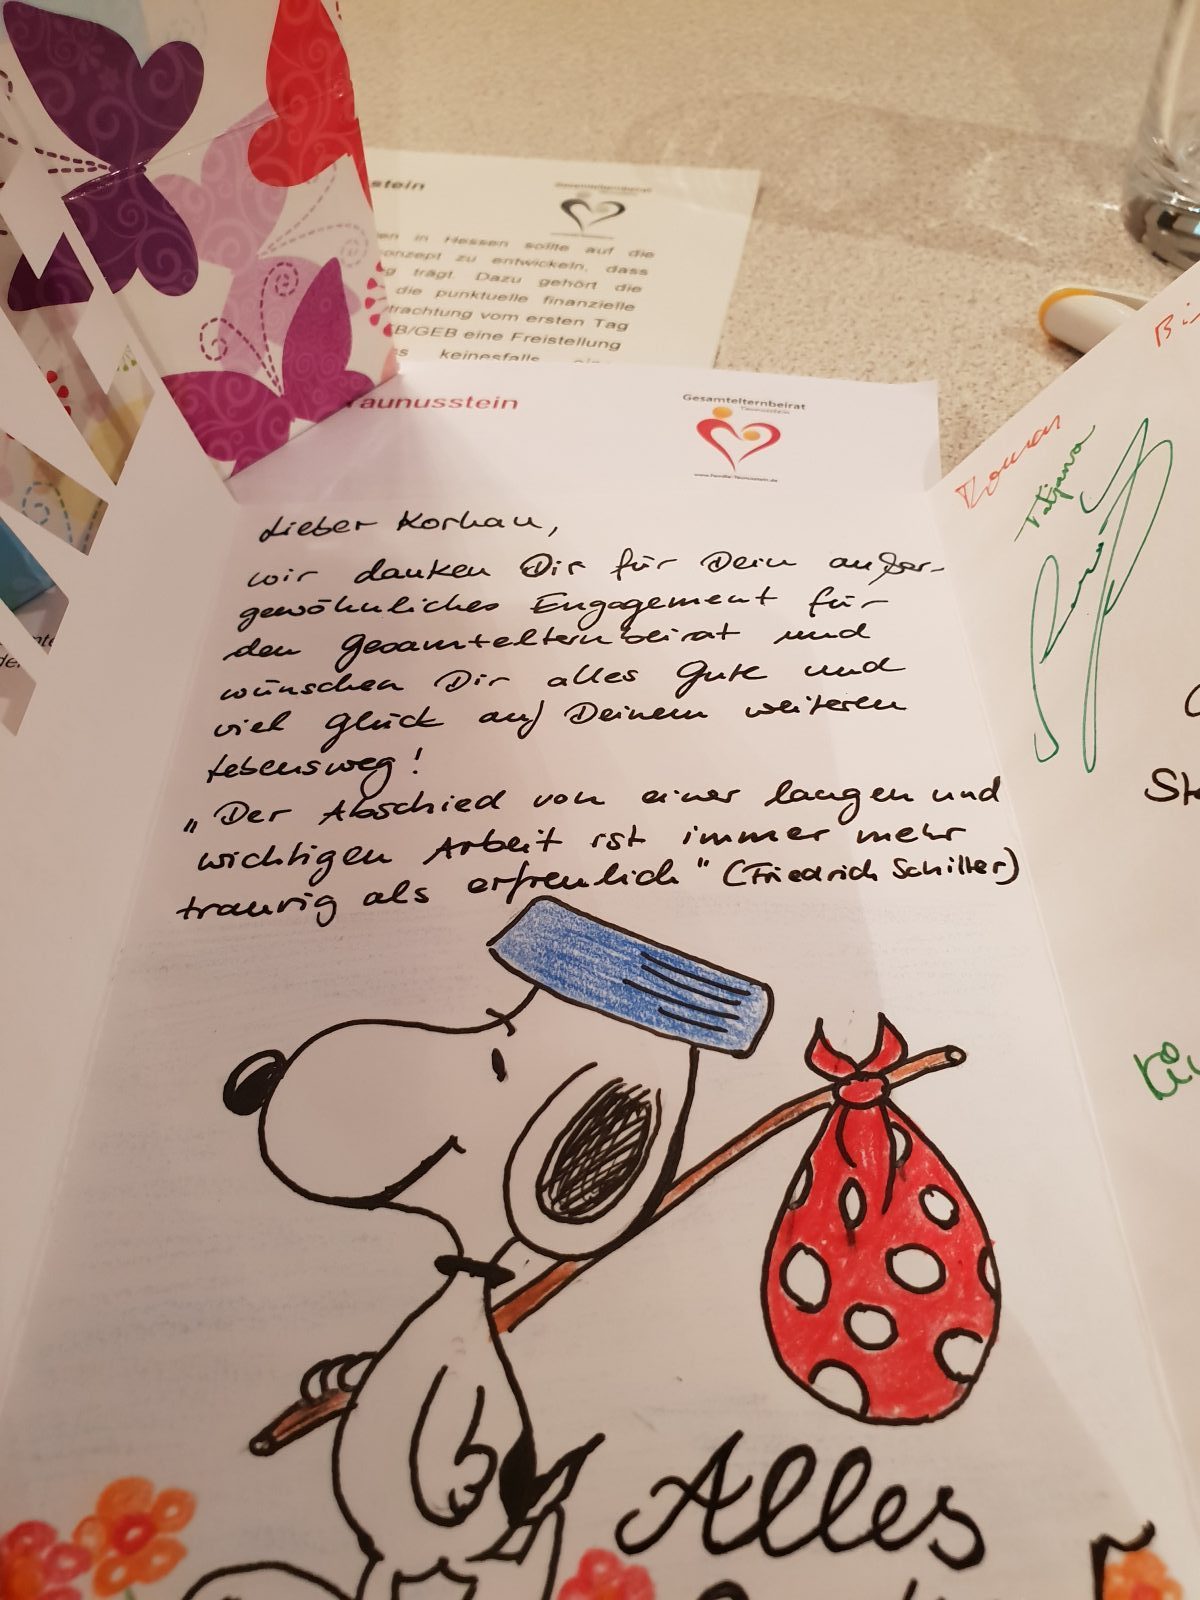 stein
Gesamtelternbeirat
en in Hessen sollte auf die
onzept zu entwickeln, dass
g trägt. Dazu gehört die
die punktuelle finanzielle
trachtung vom ersten Tag
B/GEB eine Freistellung
keinesfalls
Taunusstein
Gesamtelternbeirat
Taunusstein
www.familie-taunusstein.de
Lieber Korhan,
wir danken Dir für Dein außer-
gewöhnliches Engagement für
den Gesamtelternbeirat und
wünschen Dir alles Gute und
viel Glück auf Deinem weiteren
Lebensweg!
„Der Abschied von einer langen und
wichtigen Arbeit ist immer mehr
traurig als erfreulich" (Friedrich Schiller)
Alles
Roman
Tatjana